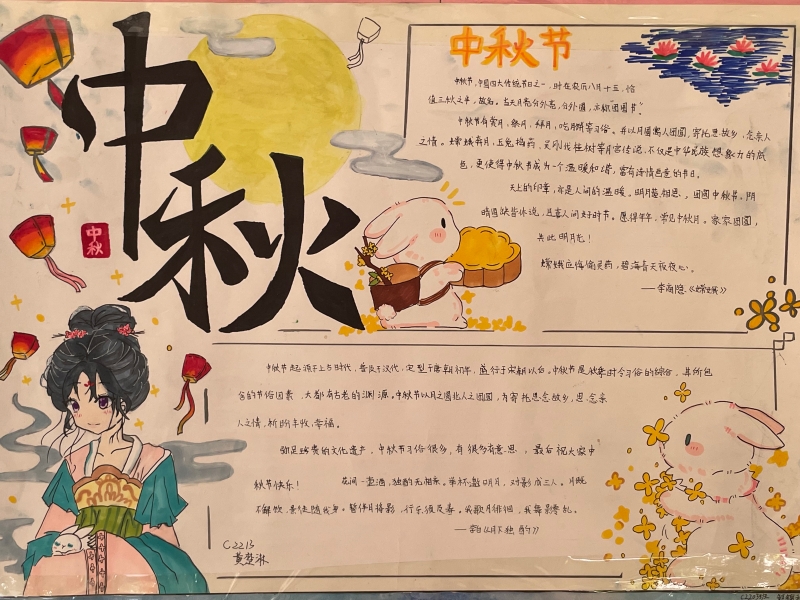 中秋
中秋
中秋节
中秋节,中国四大传统节日之一,时在农历八月十五,恰
值三秋之半,故名。当天月亮分外亮,分外圆,亦称"团圆节"。
中秋节有赏月、祭月、拜月、吃月饼等习俗。并以月圆寓人团圆,寄托思故乡,念亲人
之情。嫦娥奔月,玉兔捣药,吴刚伐桂树等月宫传说,不仅是中华民族想象力的
也,更使得中秋节成为一个温暖和谐,富有诗情画意的节日。
天上的印章,亦是人间的温暖。明月蕴相思,团圆中秋节。阴
晴圆缺皆休说,且喜人间好时节。愿得年年,常见中秋月。家家团圆,
共此明月光!
嫦娥应悔偷灵药,碧海青天夜夜心。
——李商隐《嫦娥》
中秋节起源于上古时代,普及于汉代,定型于唐朝初年,盛行于宋朝以后。中秋节是秋季时令习俗的综合,其所包
含的节俗因素,大都有古老的渊源。中秋节以月之圆兆人之团圆,为寄托思念故乡,思念亲
人之情,祈盼丰收、幸福。
弥足珍贵的文化遗产,中秋节习俗很多,有很多有意思,最后祝大家中
秋节快乐! 花间一壶酒,独酌无相亲。举杯邀明月,对影成三人。月既
不解饮,影徒随我身。暂伴月将影,行乐须及春。我歌月徘徊,我舞影零乱。
——李白《月下独酌》
C2213
黄楚淋